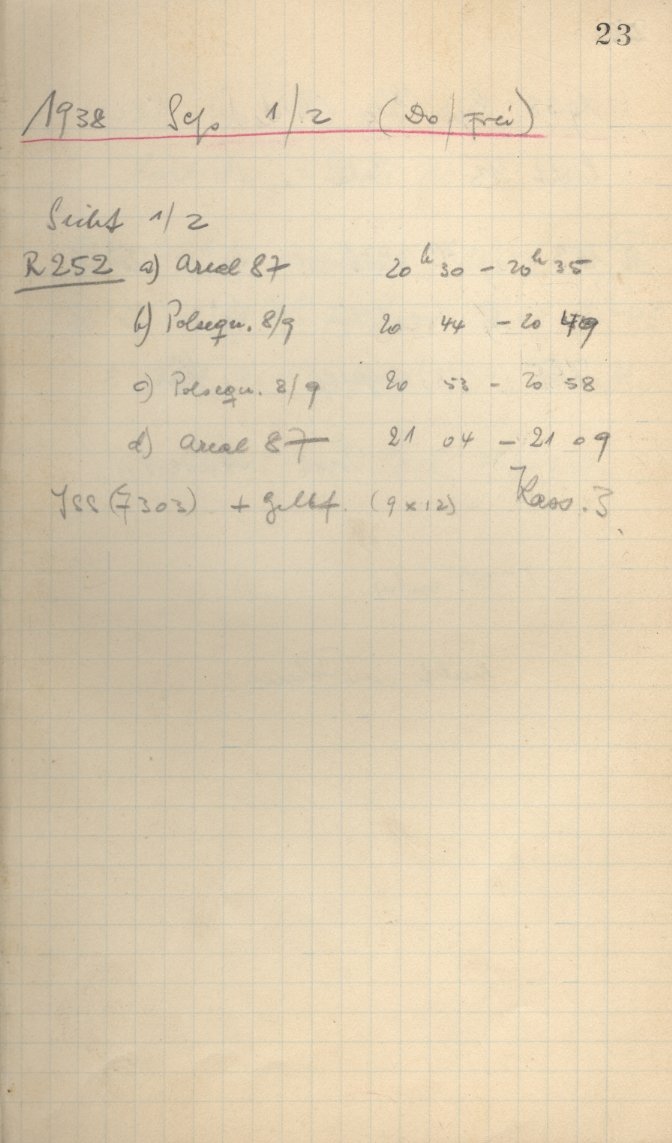 23
1938 Sep. 1/2 (Do/Frei)
Sicht 1/2
R 252 a) Areal 87 20h 30 - 20h 35
b) Polsequ. 8/9 20 44 - 20 49
c) Polsequ. 8/9 20 53 - 20 58
d) Areal 87 21 04 - 21 09
ISS (7303) + Gelbf. (9 x 12) Kass. 3